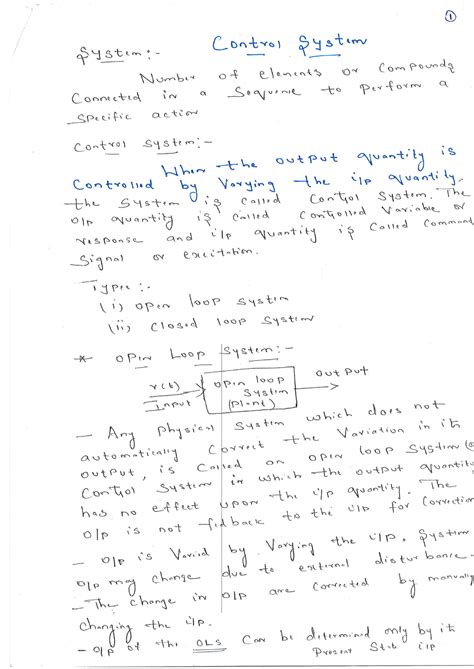 ①
Control System
System:-
Number of elements or compounds
Connected in a Sequence to perform a
specific action
Control System:-
When the output quantity is
Controlled by Varying the i/p quantity,
the System is called Control System. The
o/p quantity is called controlled Variable or
response and i/p quantity is called Command
Signal or excitation.
Types :-
(i) open loop system
(ii) closed loop system
* open Loop System:-
r(t)
Input
open loop
System
(plant)
output
- Any physical system which does not
automatically correct the Variation in its
output, is called an open loop System (
Control System in which the output quantity
has no effect upon the i/p quantity. The
o/p is not fedback to the i/p for correction
- o/p is Varied by Varying the i/p. System
o/p may change due to external disturbance.
- The change in o/p are corrected by manually
changing the i/p.
- o/p of the OLS can be determined only by its
present state i/p